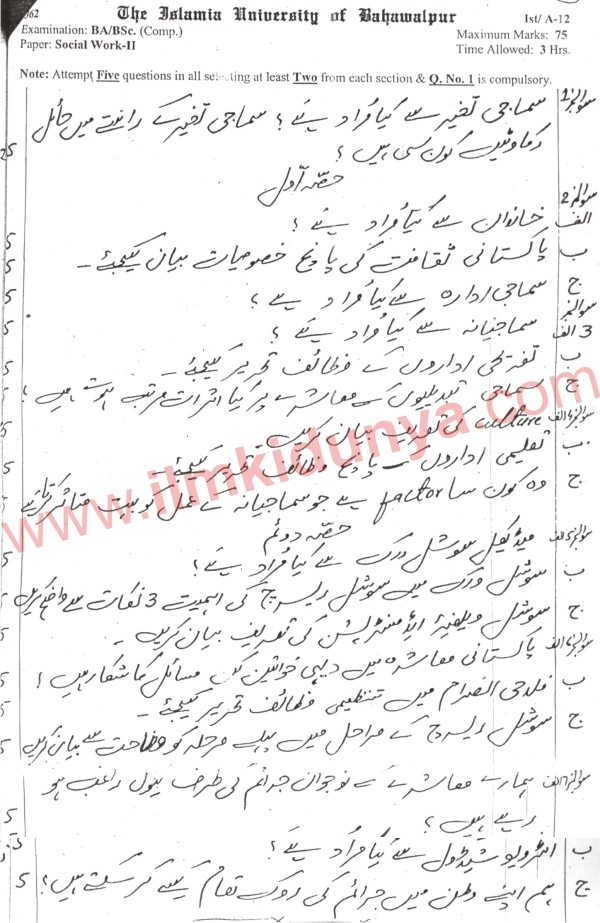 The Islamia University of Bahawalpur
Examination: BA/BSc. (Comp.)
Ist/ A-12
Paper: Social Work-II
Maximum Marks: 75
Time Allowed: 3 Hrs.
Note: Attempt Five questions in all selecting at least Two from each section & Q. No. 1 is compulsory.
سماجی تغیر سے کیا مراد ہے؟ سماجی تغیر کے راستے میں حائل
رکاوٹیں کون سی ہیں؟ 25
حصہ اول
سوال نمبر 2
الف خاندان سے کیا مراد ہے؟ 5
ب پاکستانی ثقافت کی پانچ خصوصیات بیان کیجئے۔ 5
ج سماجی ادارہ سے کیا مراد ہے؟ 5
3 الف سماجیانہ سے کیا مراد ہے؟ 5
ب تفریحی اداروں کے وظائف تحریر کیجئے۔ 5
ج سماجی تبدیلیوں کے معاشرے پر کیا اثرات مرتب ہوتے ہیں؟
culture کی تعریف بیان کریں۔
ب تعلیمی اداروں کے پانچ وظائف تحریر کیجئے۔ 5
ج وہ کون سا factor ہے جو سماجیانہ کے عمل کو بہت متاثر کرتا ہے
حصہ دوئم
میڈیکل سوشل ورک سے کیا مراد ہے؟ 5
ب سوشل ورک میں سوشل ریسرچ کی اہمیت 3 نکات سے واضح کریں 5
ج سوشل ویلفیئر ایڈمنسٹریشن کی تعریف بیان کریں۔ 5
پاکستانی معاشرہ میں دیہی خواتین کن مسائل کا شکار ہیں؟ 5
ب فلاحی انصرام میں تنظیمی وظائف تحریر کیجئے۔ 5
ج سوشل ریسرچ کے مراحل میں پہلے مرحلہ کو وضاحت سے بیان کریں 5
ہمارے معاشرے کے نوجوان جرائم کی طرف کیوں راغب ہو
رہے ہیں؟ 5
ب انٹرویو شیڈول سے کیا مراد ہے؟ 5
ج ہم اپنے وطن میں جرائم کی روک تھام کیسے کر سکتے ہیں؟ 5
www.ilmkidunya.com